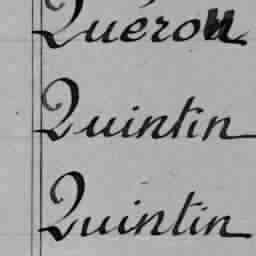 Quérou
Quintin
Quintin